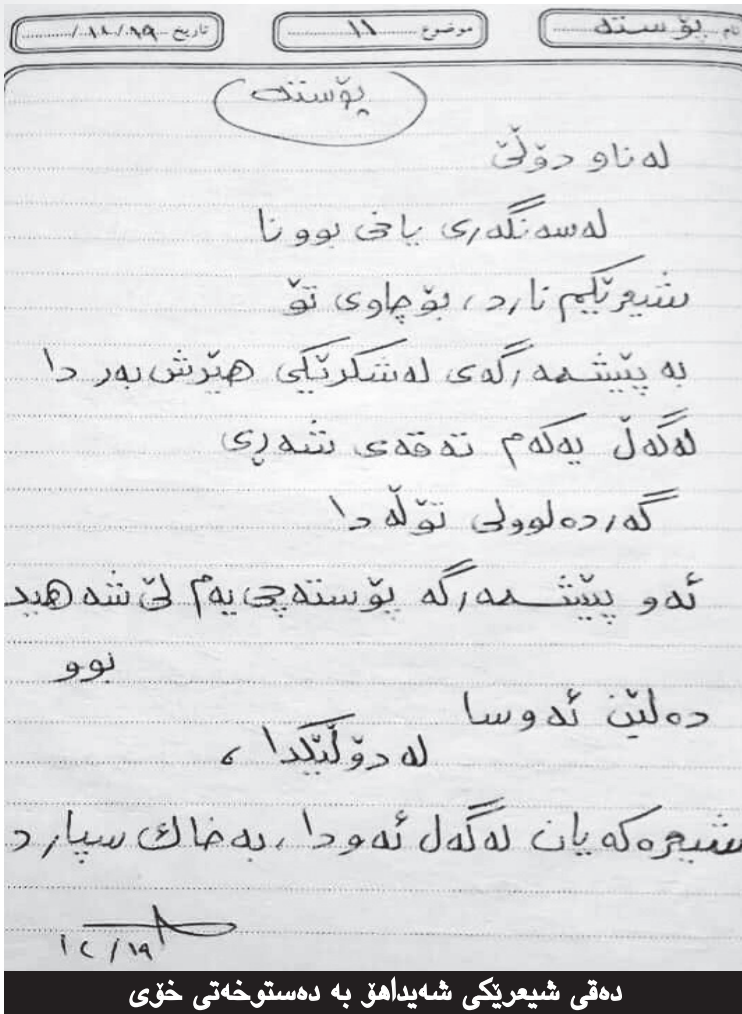 نام پۆستە
موضوع ۱۱
تاریخ ۱۹/۱۸/
پۆستە
لەناو دۆڵێ
لەسەنگەری یاخی بوونا
شیعرێکیم نارد، بۆ چاوی تۆ
بە پێشمەرگەی لەشکرێکی هێرش بەر دا
لەگەڵ یەکەم تەقەی شەڕی
گەردەلوولی تۆڵەدا
ئەو پێشمەرگە پۆستەچی یەم لێ شەهید
بوو
دەلێن ئەوسا
لەدۆڵێکدا،
شیعرەکەیان لەگەل ئەودا، بەخاک سپارد
۱۲/۱۹
دەقی شیعرێکی شەیداهۆ بە دەستوخەتی خۆی